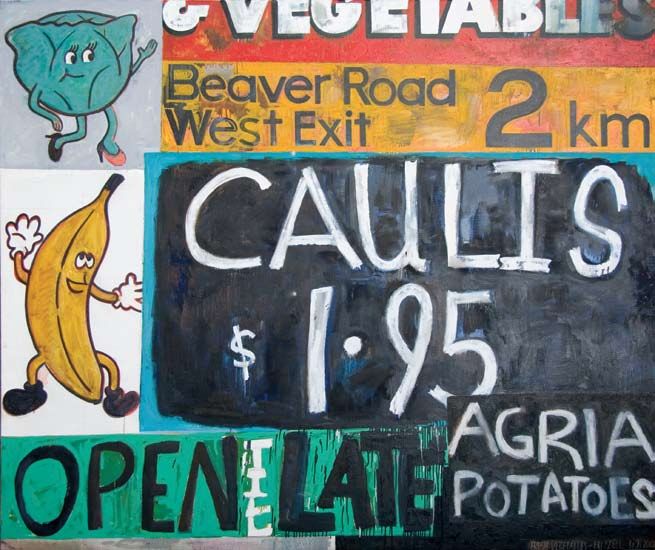 & VEGETABLES
Beaver Road
West Exit
2 km
CAULIS
$ 1.95
OPEN TIL LATE
AGRIA
POTATOES